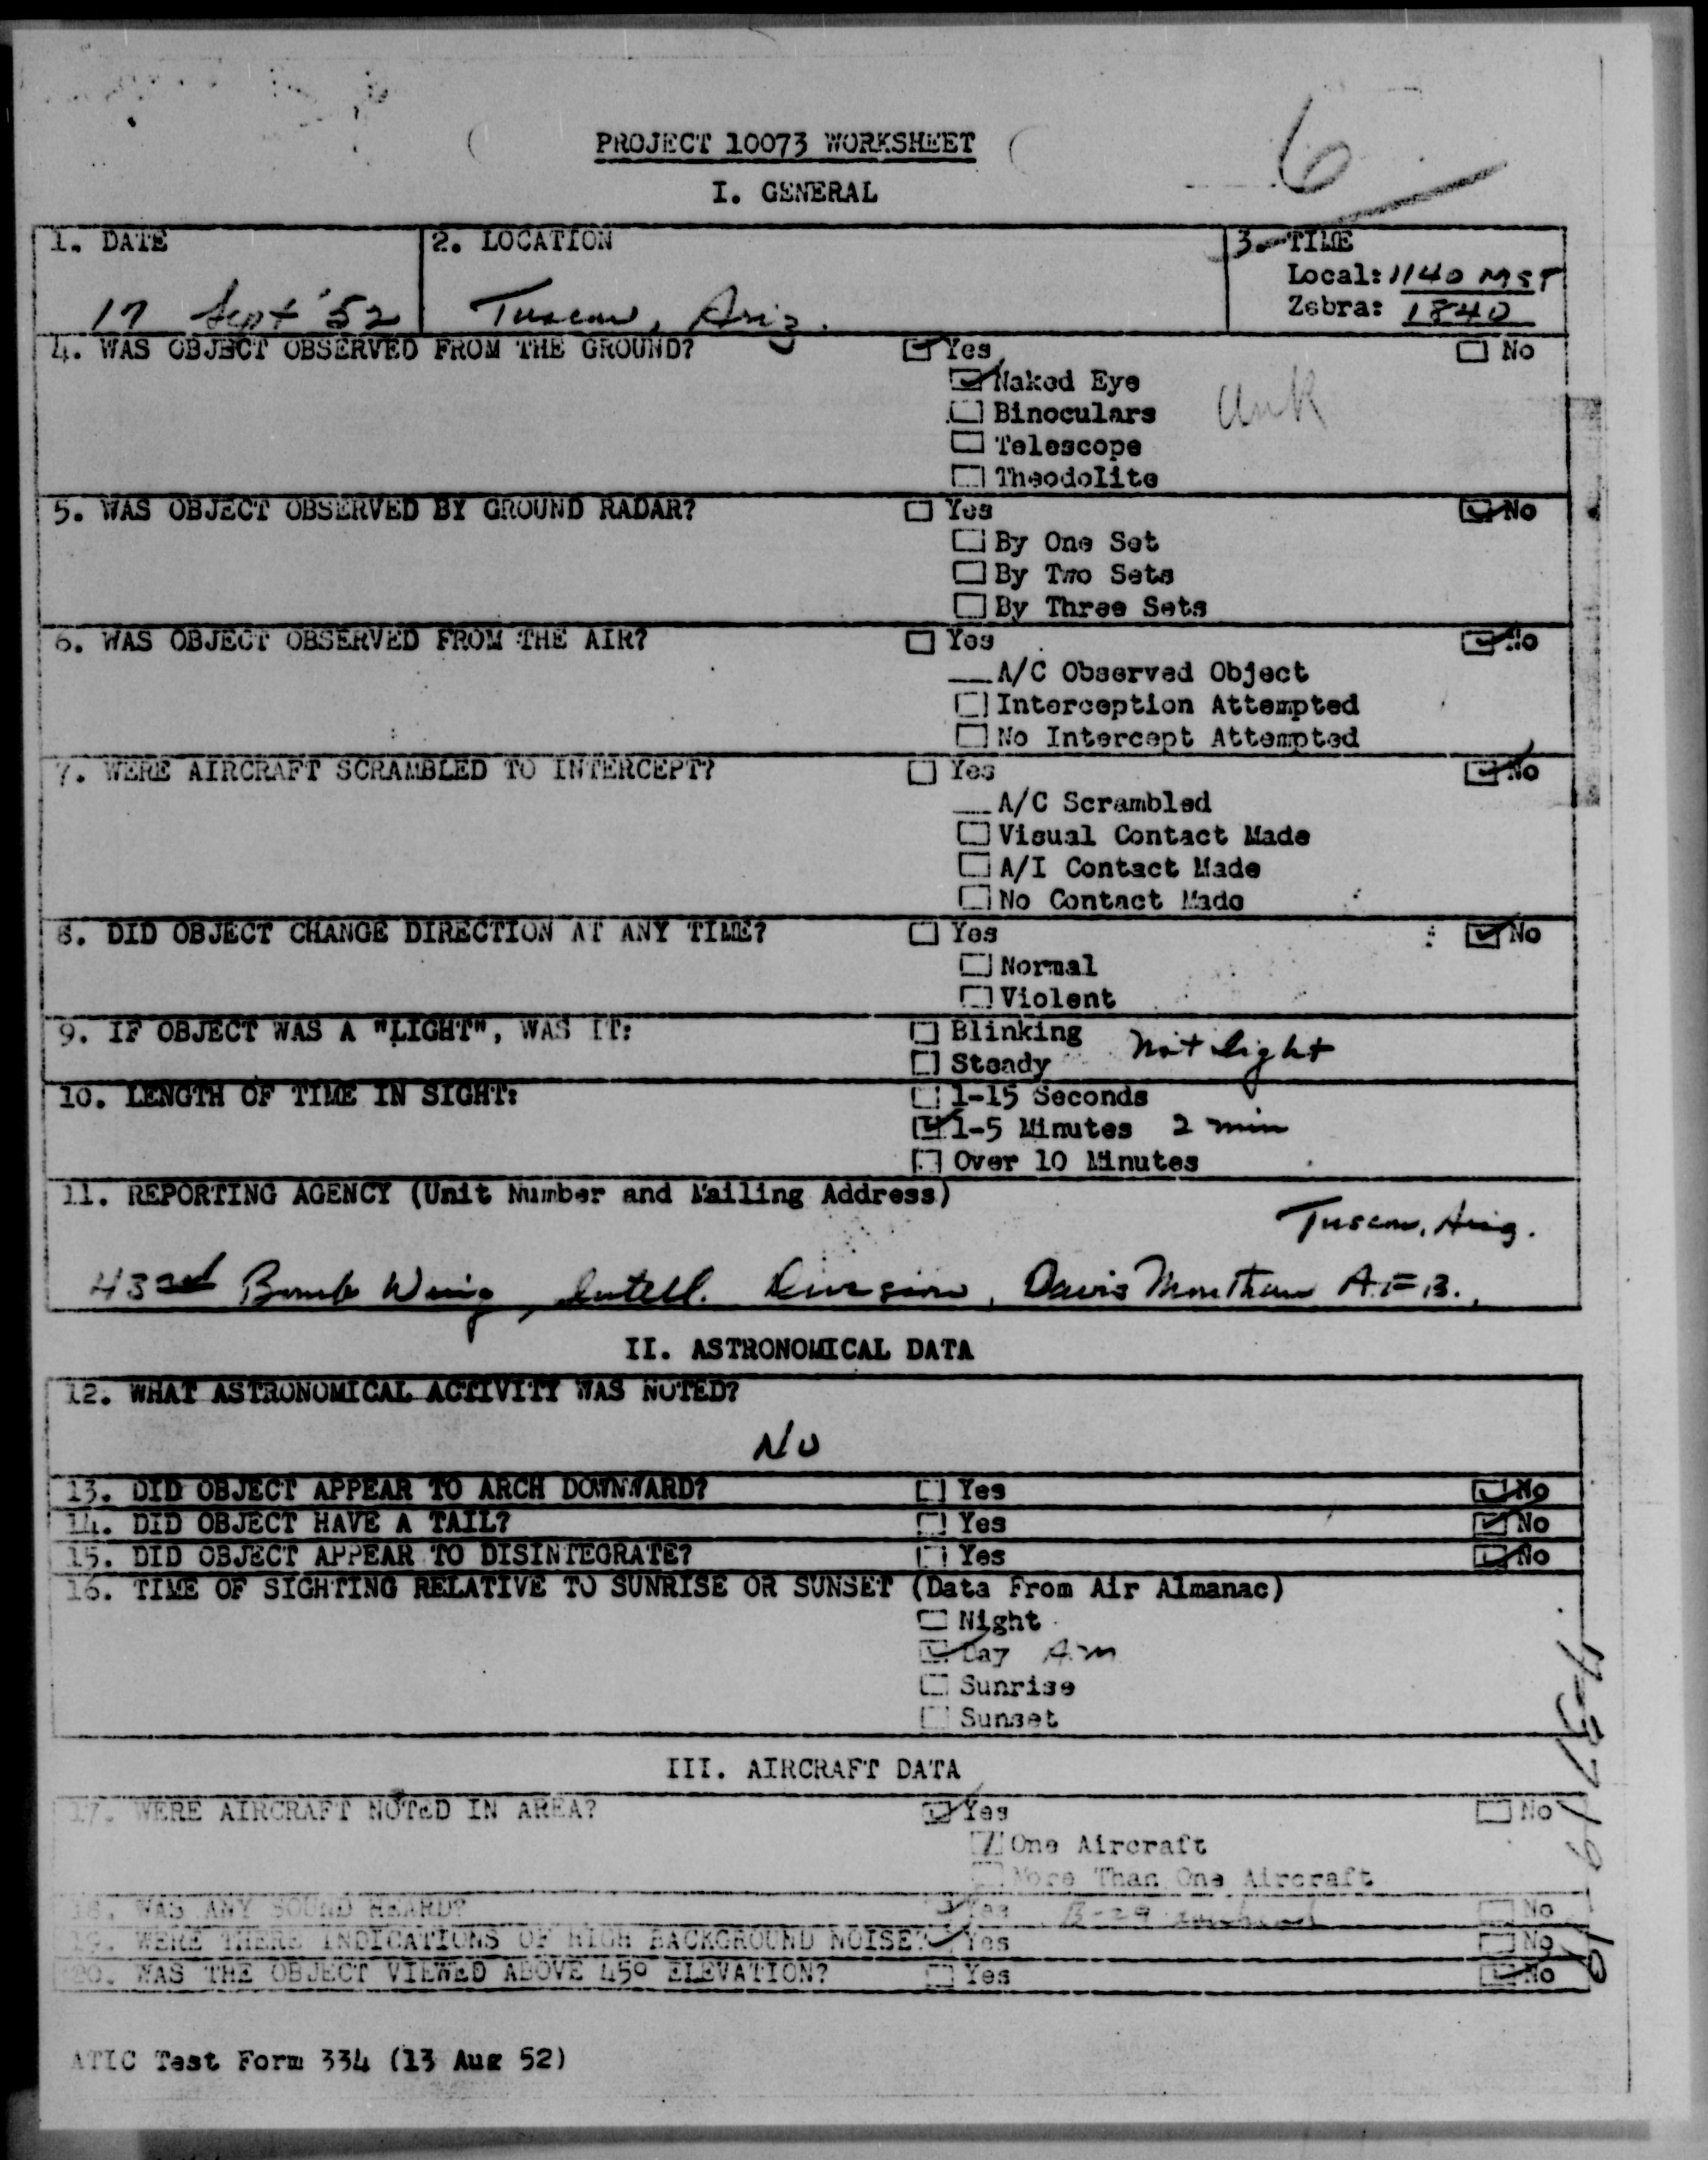 6
PROJECT 10073 WORKSHEET
I. GENERAL
1. DATE
17 Sept '52
2. LOCATION
Tuscon, Ariz.
3. TIME
Local: 1140 MST
Zebra: 1840
4. WAS OBJECT OBSERVED FROM THE GROUND? Yes No
Naked Eye
Binoculars unk
Telescope
Theodolite
5. WAS OBJECT OBSERVED BY GROUND RADAR? Yes No
By One Set
By Two Sets
By Three Sets
6. WAS OBJECT OBSERVED FROM THE AIR? Yes No
A/C Observed Object
Interception Attempted
No Intercept Attempted
7. WERE AIRCRAFT SCRAMBLED TO INTERCEPT? Yes No
A/C Scrambled
Visual Contact Made
A/I Contact Made
No Contact Made
8. DID OBJECT CHANGE DIRECTION AT ANY TIME? Yes No
Normal
Violent
9. IF OBJECT WAS A "LIGHT", WAS IT: Blinking
Steady Not light
10. LENGTH OF TIME IN SIGHT: 1-15 Seconds
1-5 Minutes 2 min
Over 10 Minutes
11. REPORTING AGENCY (Unit Number and Mailing Address)
Tuscon, Ariz.
43rd Bomb Wing, Intell. Division, Davis Monthan A.F.B.,
II. ASTRONOMICAL DATA
12. WHAT ASTRONOMICAL ACTIVITY WAS NOTED?
No
13. DID OBJECT APPEAR TO ARCH DOWNWARD? Yes No
14. DID OBJECT HAVE A TAIL? Yes No
15. DID OBJECT APPEAR TO DISINTEGRATE? Yes No
16. TIME OF SIGHTING RELATIVE TO SUNRISE OR SUNSET (Data From Air Almanac)
Night
Day A.M
Sunrise
Sunset
III. AIRCRAFT DATA
17. WERE AIRCRAFT NOTED IN AREA? Yes No
One Aircraft
More Than One Aircraft
18. WAS ANY SOUND HEARD? Yes B-29 No
19. WERE THERE INDICATIONS OF HIGH BACKGROUND NOISE? Yes No
20. WAS THE OBJECT VIEWED ABOVE 45° ELEVATION? Yes No
ATIC Test Form 334 (13 Aug 52)